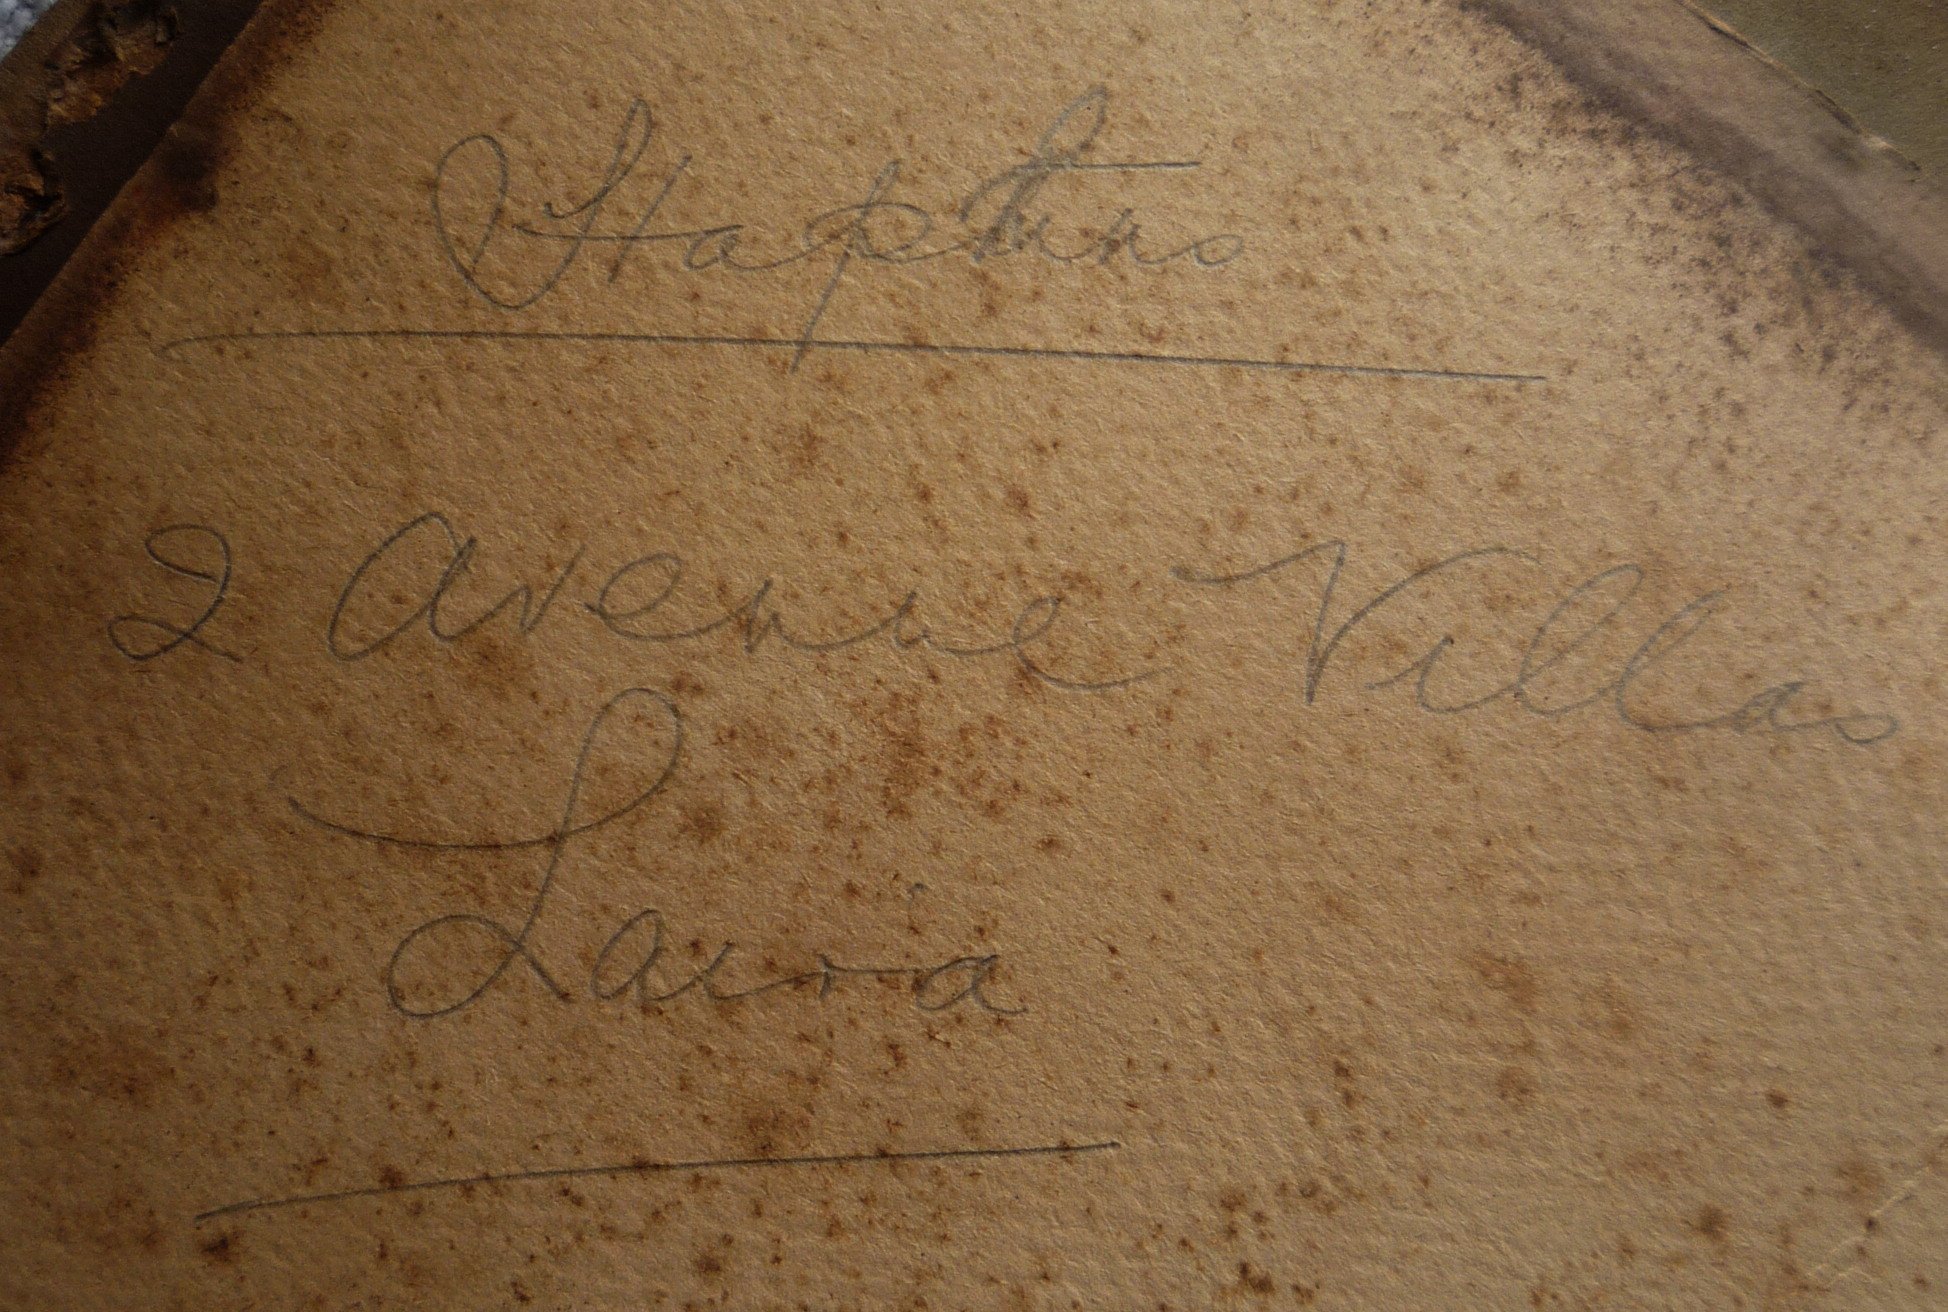 Hopkins
2 Avenue Villas
Laira